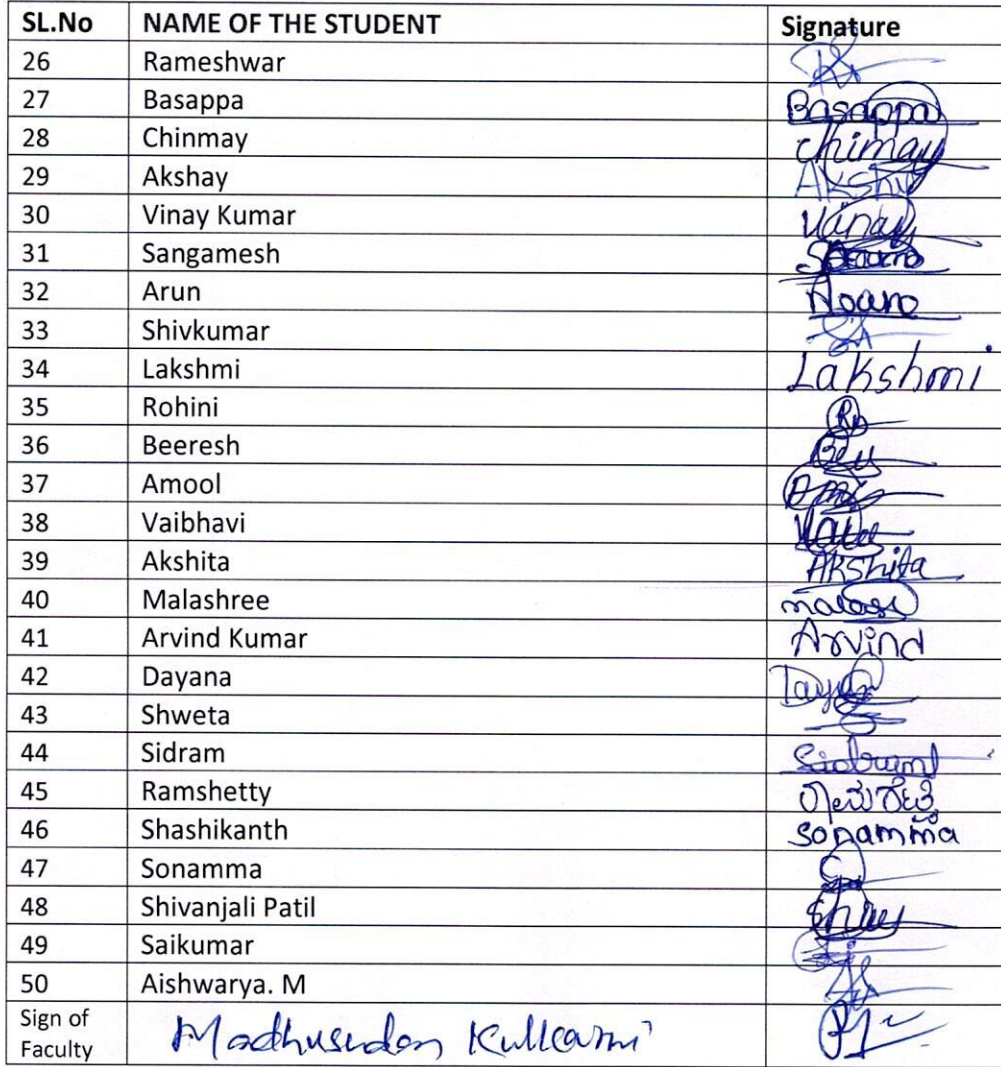 SL.No NAME OF THE STUDENT Signature
26 Rameshwar
27 Basappa Basappa
28 Chinmay Chimay
29 Akshay Akshy
30 Vinay Kumar Vinay
31 Sangamesh
32 Arun
33 Shivkumar
34 Lakshmi Lakshmi
35 Rohini
36 Beeresh
37 Amool
38 Vaibhavi
39 Akshita Akshita
40 Malashree
41 Arvind Kumar Arvind
42 Dayana
43 Shweta
44 Sidram
45 Ramshetty
46 Shashikanth Sonamma
47 Sonamma
48 Shivanjali Patil
49 Saikumar
50 Aishwarya. M
Sign of
Faculty Madhusudan Kulkarni